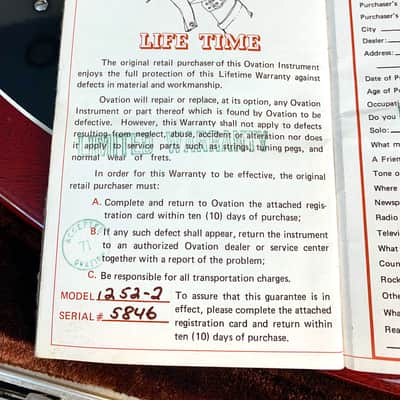 LIFE TIME
The original retail purchaser of this Ovation Instrument
enjoys the full protection of this Lifetime Warranty against
defects in material and workmanship.
Ovation will repair or replace, at its option, any Ovation
Instrument or part thereof which is found by Ovation to be
defective. However, this Warranty shall not apply to defects
resulting from neglect, abuse, accident or alteration nor does
it apply to service parts such as strings, tuning pegs, and
normal wear of frets.
LIMITED WARRANTY
In order for this Warranty to be effective, the original
retail purchaser must:
A. Complete and return to Ovation the attached regis-
tration card within ten (10) days of purchase;
B. If any such defect shall appear, return the instrument
to an authorized Ovation dealer or service center
together with a report of the problem;
C. Be responsible for all transportation charges.
ACCEPTED
71
OVATION
MODEL 1252-2
SERIAL # 5846
To assure that this guarantee is in
effect, please complete the attached
registration card and return within
ten (10) days of purchase.
Purchaser's
Purchaser's
City
Dealer:
Address:
Date of P
Age of P
Occupat
Do you
Solo:
What
A Frien
Tone o
Where
Newsp
Radio
Televi
What
Coun
Rock
Othe
Wha
Rea